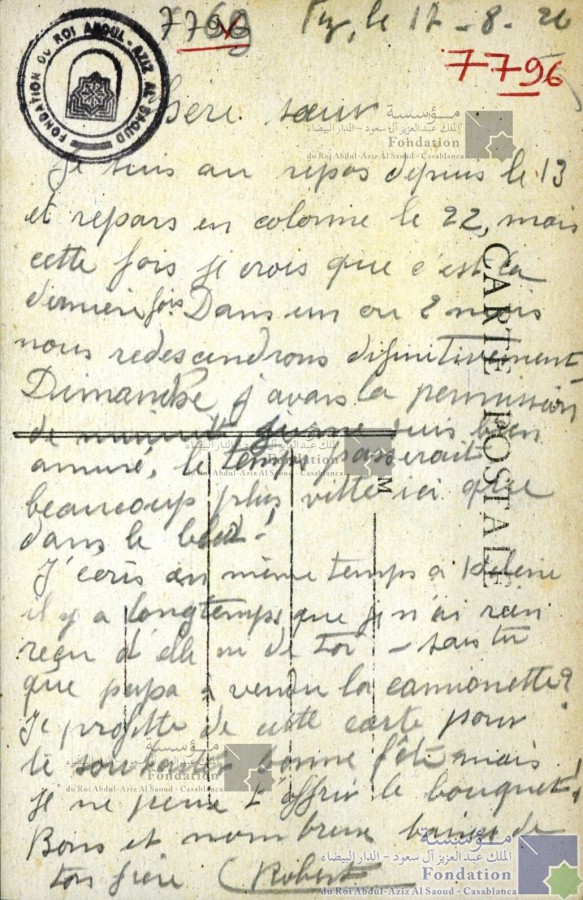 7796
Fez, le 17-8-26
7796
FONDATION DU ROI ABDUL-AZIZ AL SAOUD
Chère sœur
Je suis au repos depuis le 13
et repars en colonne le 22, mais
cette fois je crois que c'est la
dernière fois. Dans un ou 2 mois
nous redescendrons difinitivement
Dimanche j'avais la permission
de minuit je me suis bien
amusé, le temps passerait
beaucoup plus vitte ici que
dans le bled!
J'écris en même temps a Hélène
il y a longtemps que je n'ai rien
reçu d'elle ni de toi - sais tu
que papa à vendu la camionette?
Je profitte de cette carte pour
te souhaiter bonne fête mais
je ne peux t'offrir le bouquet!
Bons et nombreux baisers de
ton frère Robert
CARTE POSTALE
M
مؤسسة
الملك عبد العزيز آل سعود - الدار البيضاء
Fondation
du Roi Abdul-Aziz Al Saoud - Casablanca
مؤسسة
الملك عبد العزيز آل سعود - الدار البيضاء
Fondation
du Roi Abdul-Aziz Al Saoud - Casablanca
مؤسسة
الملك عبد العزيز آل سعود - الدار البيضاء
Fondation
du Roi Abdul-Aziz Al Saoud - Casablanca
مؤسسة
الملك عبد العزيز آل سعود - الدار البيضاء
Fondation
du Roi Abdul-Aziz Al Saoud - Casablanca